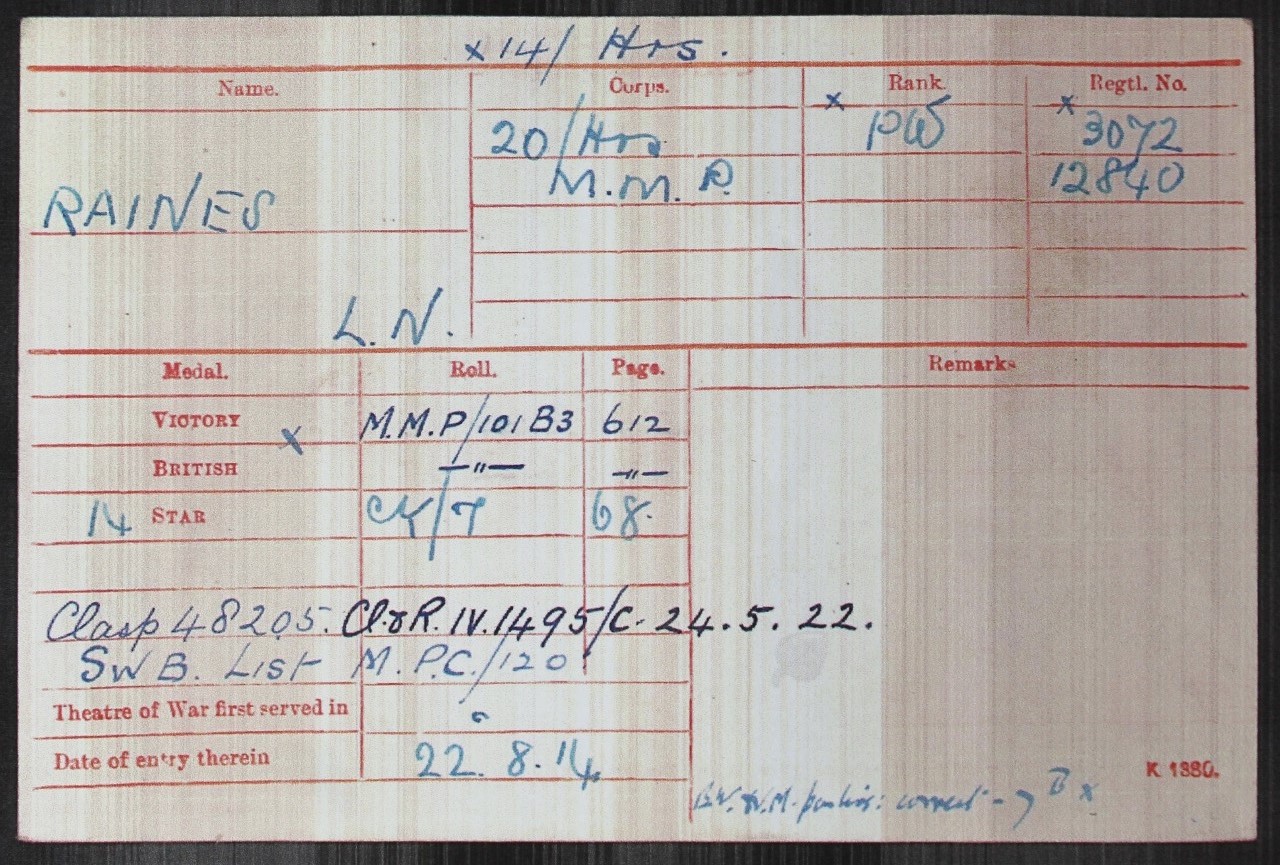 x 14/ Hrs.
Name. Corps. Rank. Regtl. No.
20/Hrs x x 3072
M.M.P. 12840
RAINES
L. N.
Medal. Roll. Page. Remarks
VICTORY x M.M.P/101 B3 612
BRITISH —"— —"—
14 STAR CK/7 68.
Clasp 48205. Cl. & R. IV. 1495/C. 24. 5. 22.
SWB. LIST M.P.C./120
Theatre of War first served in
Date of entry therein 22. 8. 14.
K 1380.
B.W. & V.M. correct - B x